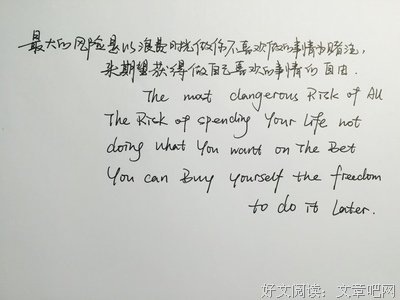 最大的风险是以浪费时光做你不喜欢做的事情为赌注，
来期望获得做自己喜欢的事情的自由.
The most dangerous Risk of All
The Risk of spending Your Life not
doing what You want on The Bet
You can Buy yourself the freedom
to do it later.
好文阅读：文章吧网